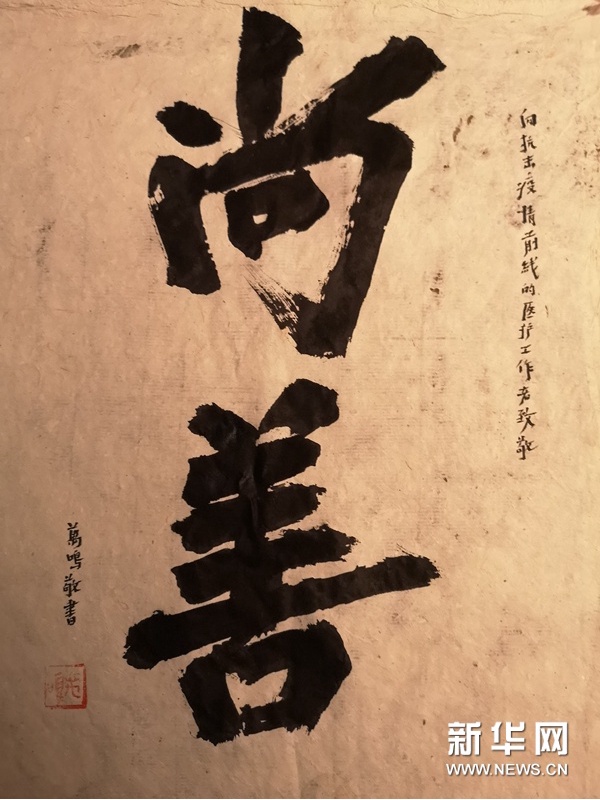 向抗击疫情前线的医护工作者致敬
尚善
葛鸣敬书
新华网
WWW.NEWS.CN